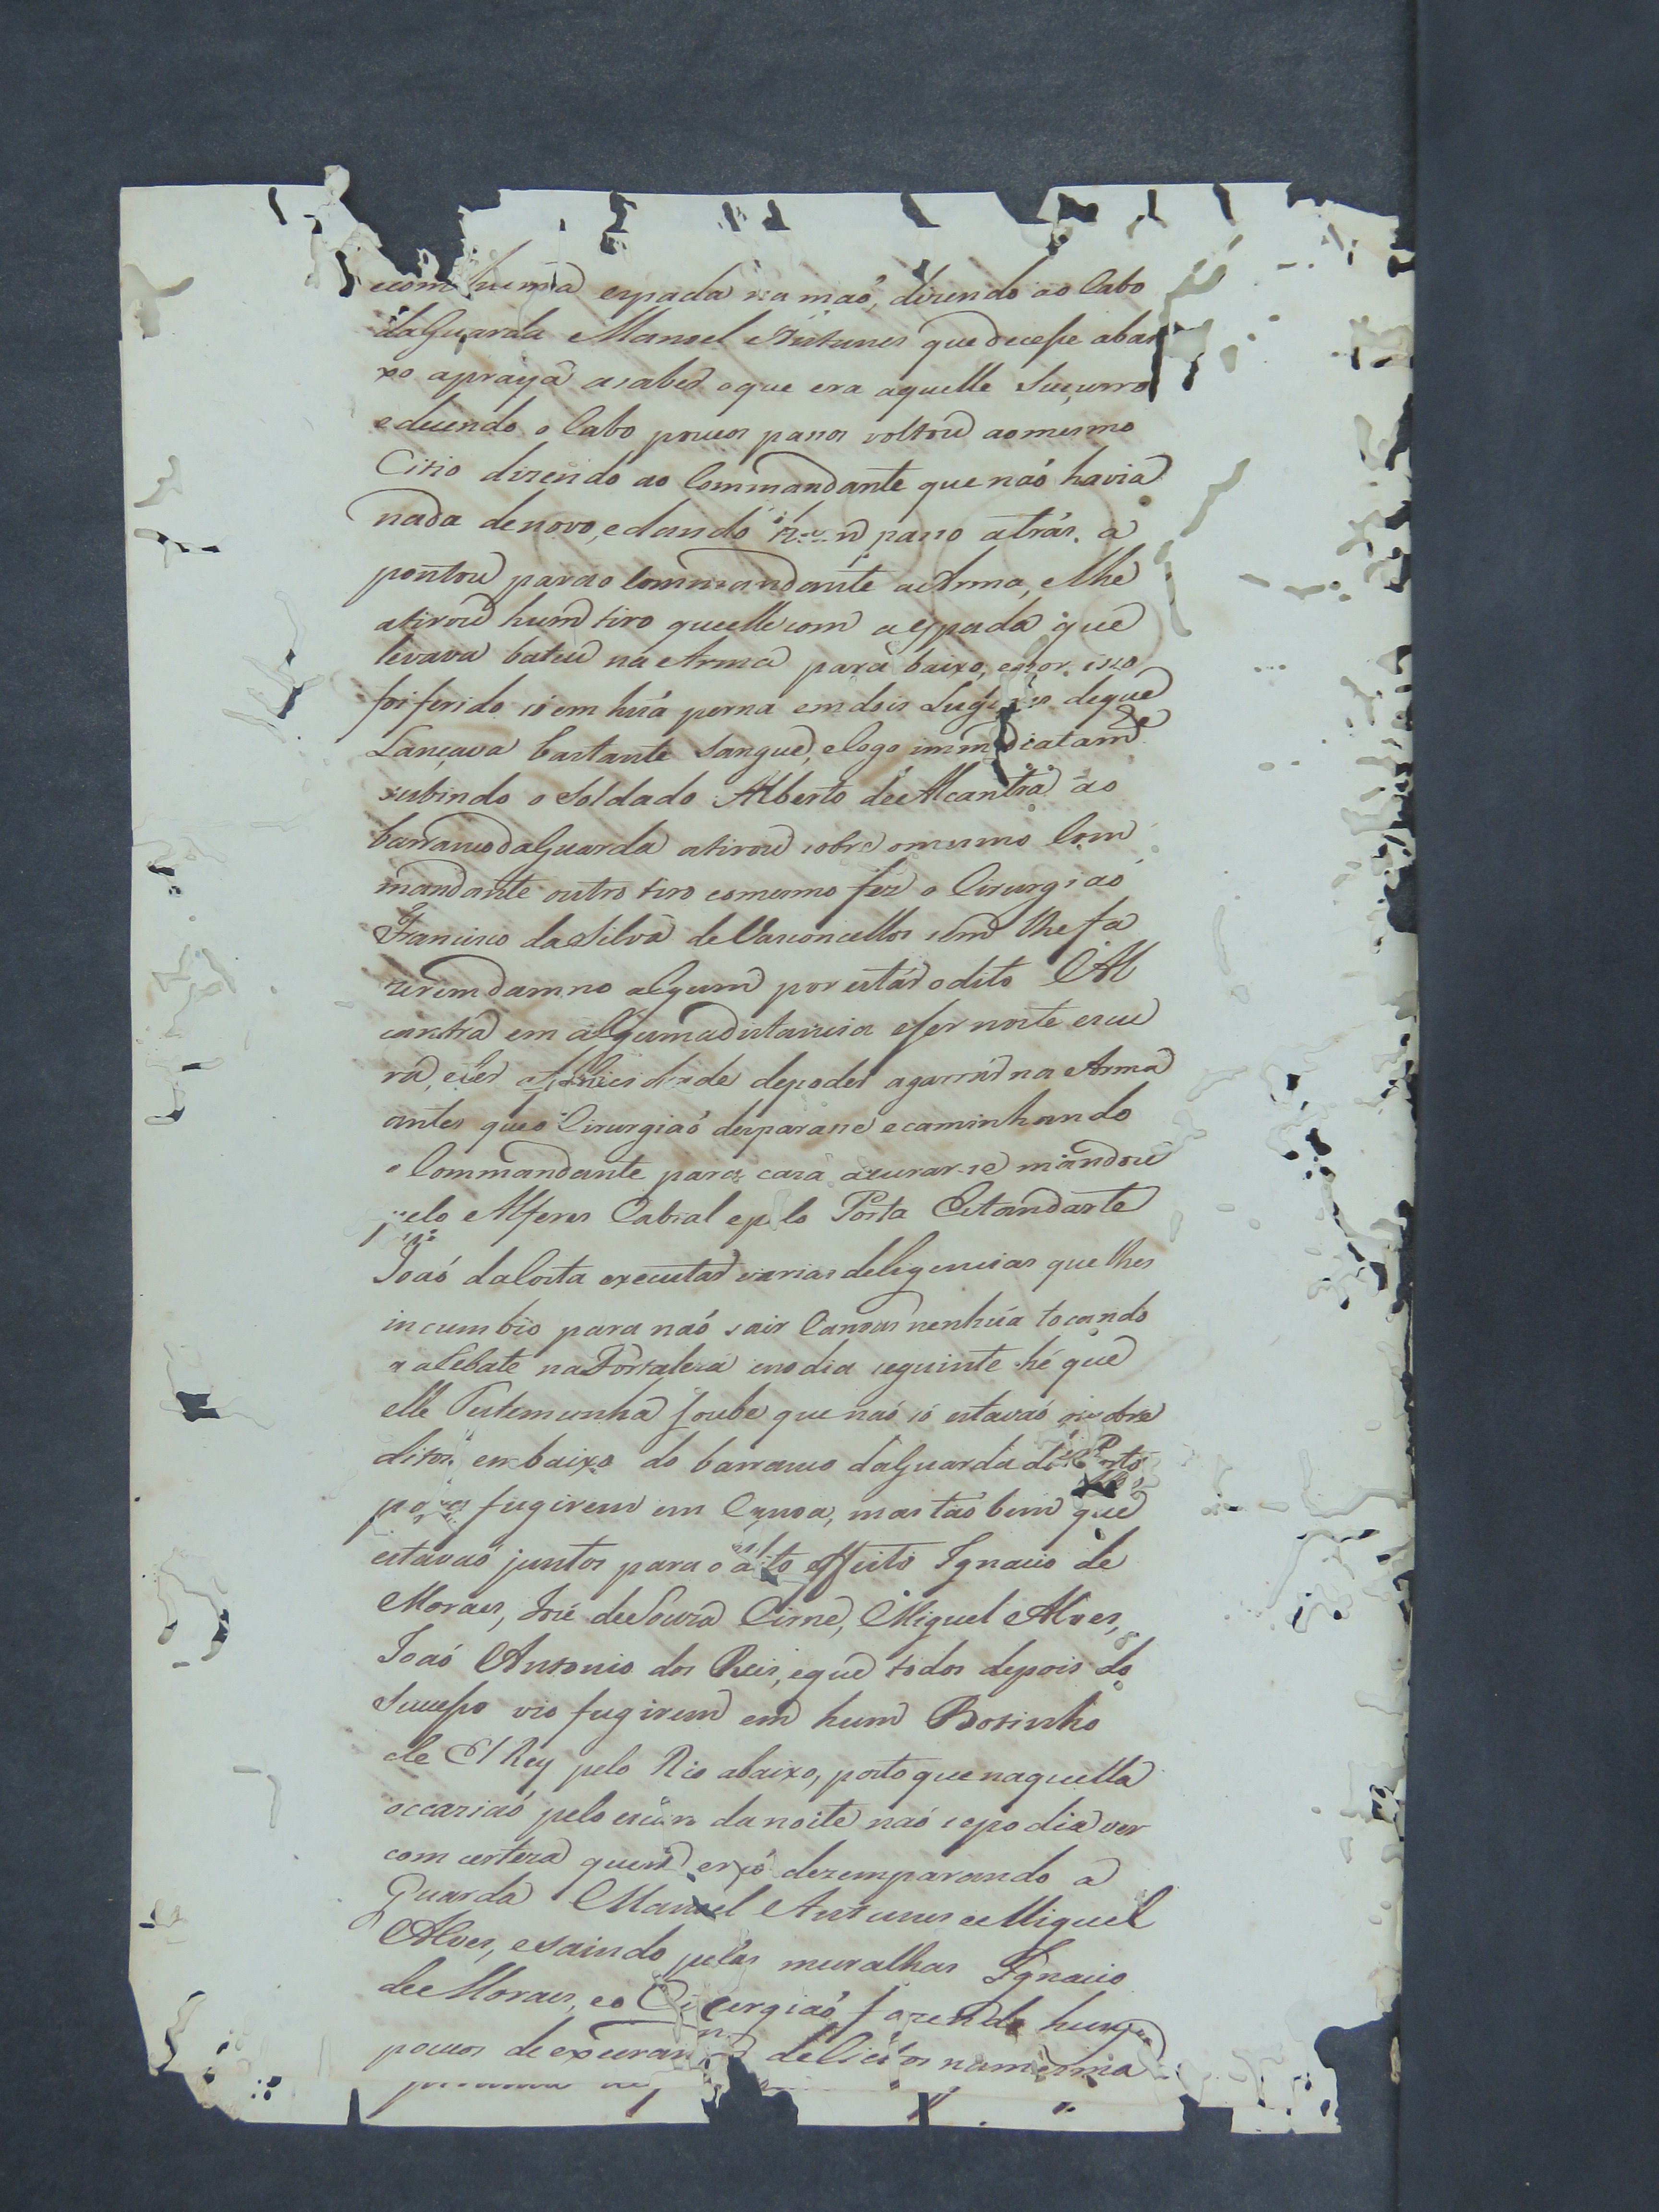 ecom huma espada na maõ, dizendo ao Cabo
da Guarda Manoel Antunes que decese abai
xo apraya asaber oque era aquelle Suçurro
e decendo o Cabo poucos passos voltou aomesmo
Citio dizendo ao Commandante que naõ havia
nada denovo, edando hum passo atrás, a
pontou para o Commandante a Arma, elhe
atirou hum tiro queelle com a espada que
levava bateu na Arma para baixo, epor isso
foi ferido só em húa perna em dois Lugares deque
Lançava bastante sangue, elogo immediatamte
subindo o Soldado Alberto de Alcantra ao
barranco da Guarda atirou sobre omesmo Com
mandante outro tiro eomesmo fez o Cirurgiaõ
Francisco da Silva de Vasconcellos sem lhe fa
zerem damno algum por estár odito Al
cantra em alguma distancia eser noite escu
ra, eter afelicidade depoder agarrár na Arma
antes queo Cirurgiaõ desparase ecaminhando
o Commandante para caza acurar-se mandou
pelo Alferes Cabral epelo Porta Estandarte
Joaõ da Costa executar varias deligencias que lhes
incumbio para naõ sair Canoas nenhúa tocando
a Rebate na Fortaleza eno dia seguinte hé que
elle Testemunha soube que naõ só estavaõ os sobre
ditos em baixo do barranco da Guarda do Porto
para fugirem em Canoa, mas taõ bem que
estavaõ juntos para o dito effeito Ignacio de
Moraes, José de Souza Cirne, Miguel Alves,
Joaõ Antonio dos Reis, eque todos depois do
Sucesso vio fugirem em hum Botinho
de El Rey pelo Rio abaixo, posto que naquella
occaziaõ pelo escuro da noite naõ sepodia ver
com certeza quem eraõ dezemparando a
Guarda Manoel Antunes e Miguel
Alves, esaindo pelas muralhas Ignacio
de Moraes, eo Cirurgiaõ fazendo huns
poucos de delictos namesma